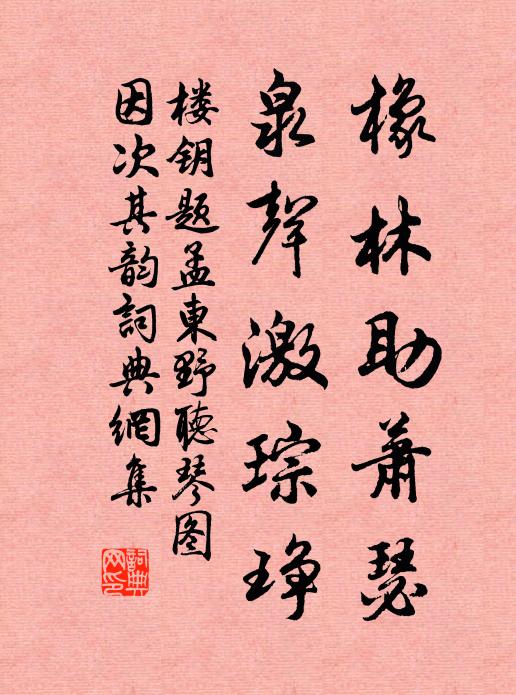 橡林助萧瑟
泉聲激琮琤
楼钥题孟東野聽琴图
因次其韵詞典網集
詞典網印